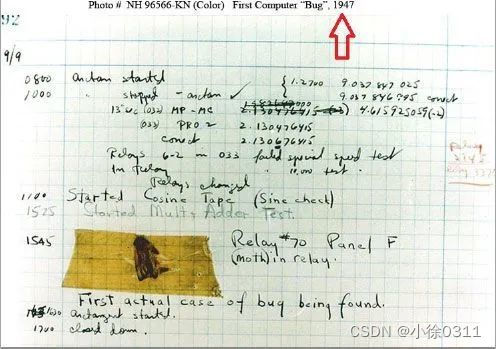 Photo # NH 96566-KN (Color) First Computer "Bug", 1947
92
9/9
0800 antan started
1000 " stopped - antan ✓ { 1.2700 9.037 847 025
9.037 846 995 correct
13"uc (032) MP-MC 2.130476415 4.615925059(-2)
(033) PRO 2 2.130476415
correct 2.130676415
Relays 6-2 in 033 failed special speed test
In Relay " 10,000 test.
Relays changed
1100 Started Cosine Tape (Sine check)
1525 Started Mult+Adder Test.
1545 Relay #70 Panel F
(Moth) in relay.
First actual case of bug being found.
1630 antangent started.
1700 closed down.
CSDN @小徐0311